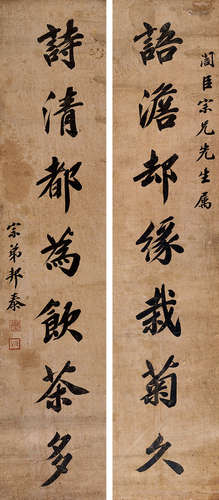 闇臣宗兄先生属
語澹却缘栽菊久
詩清都為飲茶多
宗弟邦泰